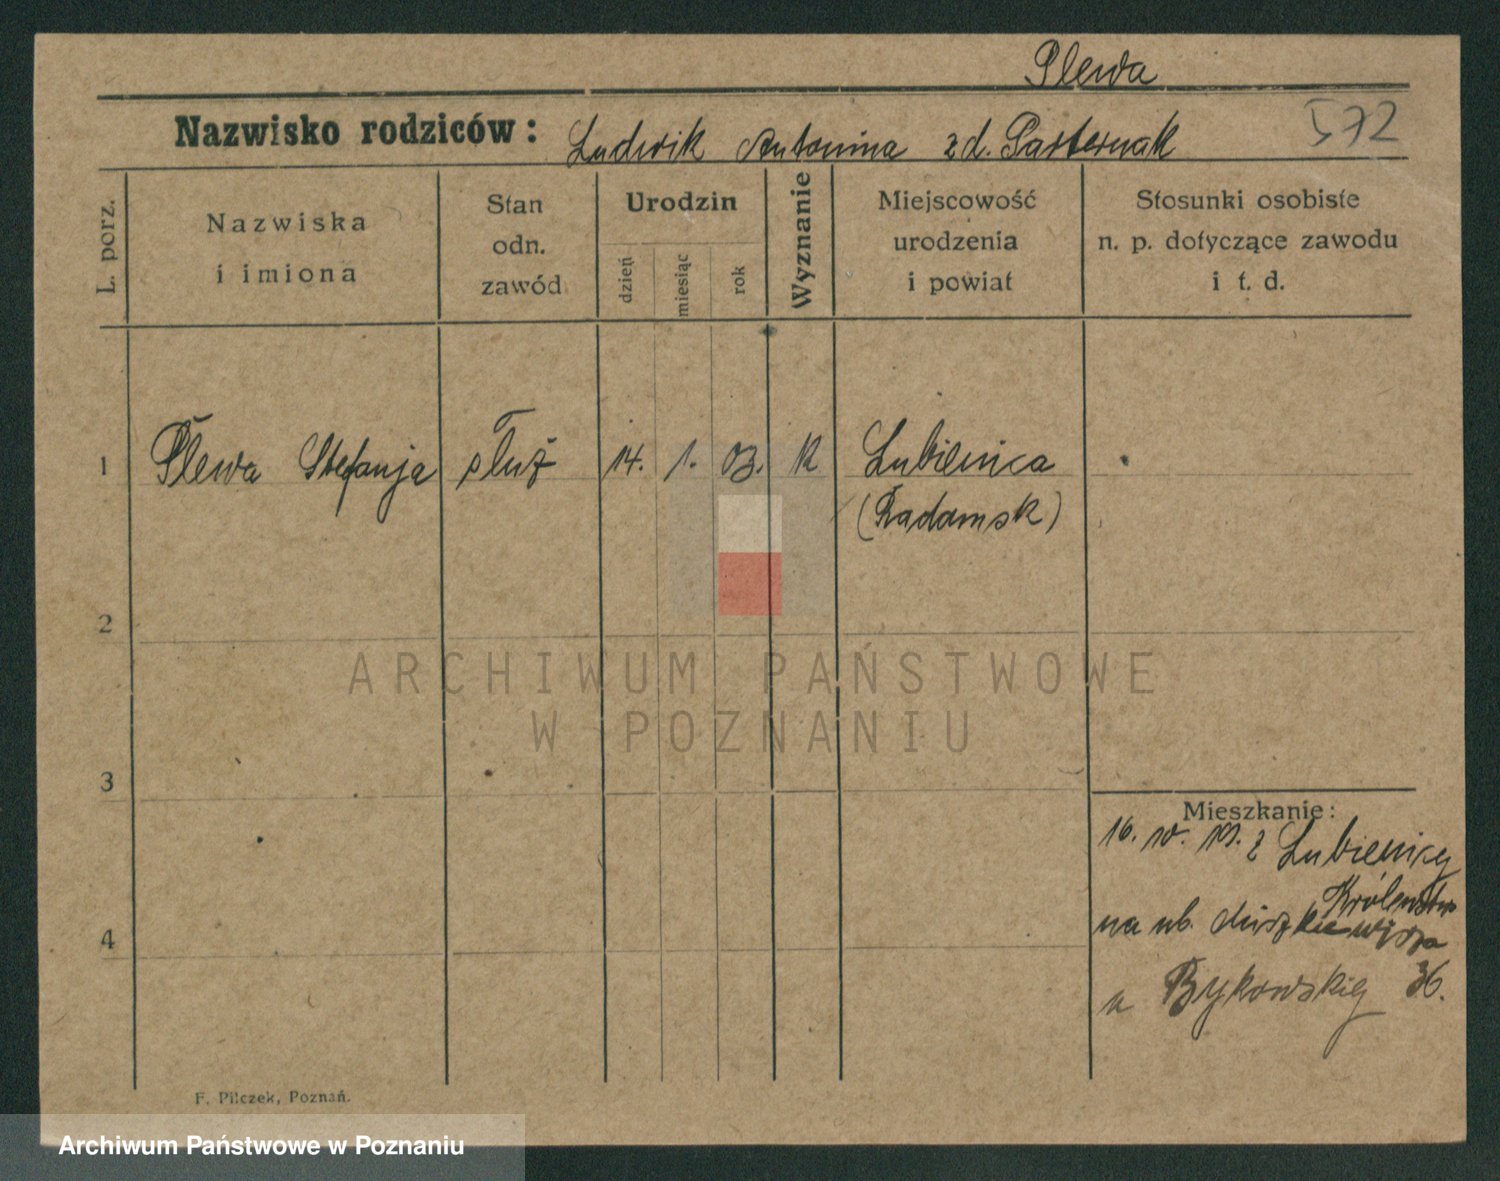 Plewa
Nazwisko rodziców: Ludwik Antonina zd. Pasternak 572
L. porz.
Nazwiska
i imiona
Stan
odn.
zawód
Urodzin
dzień
miesiąc
rok
Wyznanie
Miejscowość
urodzenia
i powiat
Stosunki osobiste
n. p. dotyczące zawodu
i t. d.
1 Plewa Stefanja służ 14. 1. 03. k Lubienica
(Radomsk)
2
3
4
ARCHIWUM PAŃSTWOWE
W POZNANIU
Mieszkanie:
16. IV. 19. z Lubienicy
Królestwo
na ub.
u Bykowskiej 36.
F. Pilczek, Poznań.
Archiwum Państwowe w Poznaniu